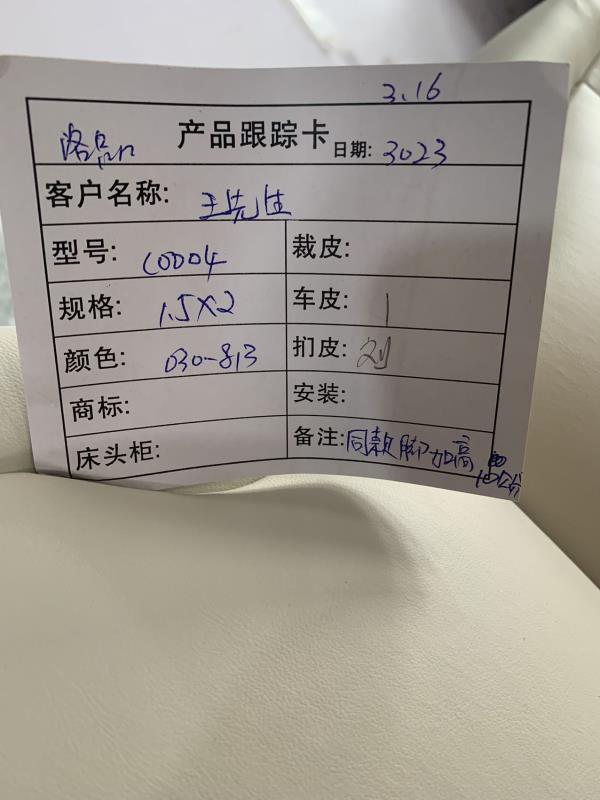 3.16
产品跟踪卡 日期: 3023
客户名称: 王先生
型号: C0D04 裁皮:
规格: 1.5X2 车皮: 1
颜色: 030-813 扪皮: 刘
商标: 安装:
床头柜: 备注: 同款脚加高
10公分